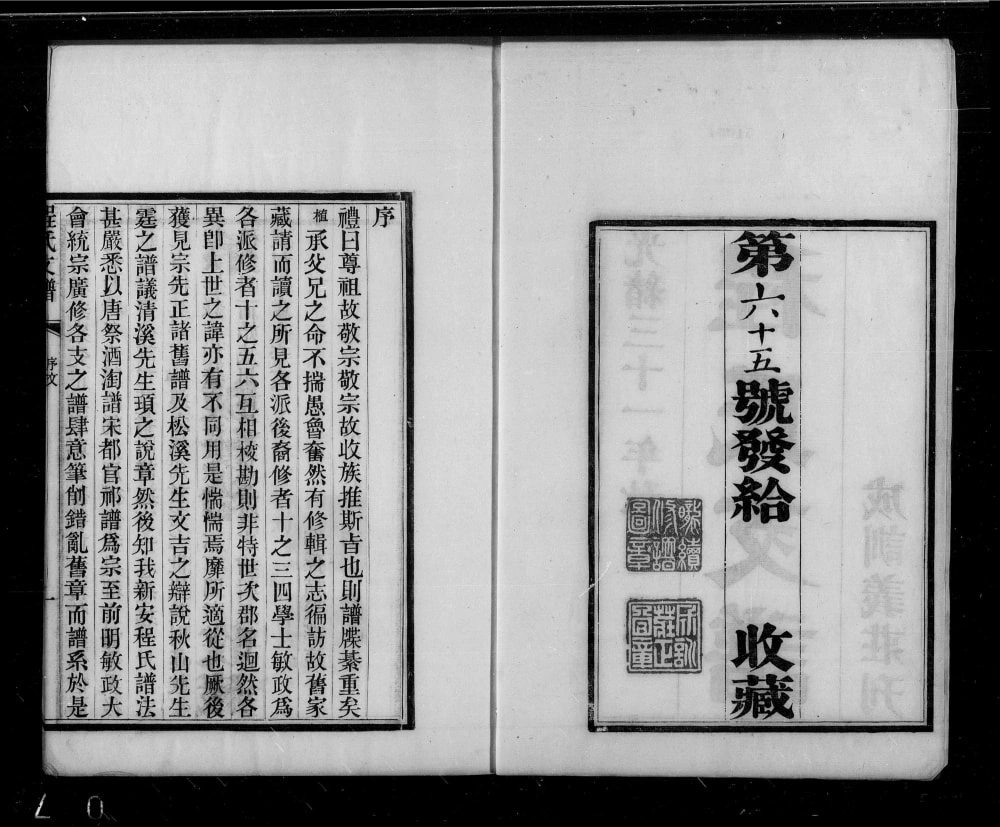 第六十五號發給
收藏
序
禮曰尊祖故敬宗敬宗故收族推斯旨也則譜牒綦重矣
植承父兄之命不揣愚魯奮然有修輯之志徧訪故舊家
藏請而讀之所見各派後裔修者十之三四學士敏政爲
各派修者十之五六互相校勘則非特世次郡名迥然各
異卽上世之諱亦有不同用是惴惴焉靡所適從也厥後
獲見宗先正諸舊譜及松溪先生文吉之辯說秋山先生
霆之譜議清溪先生項之說章然後知我新安程氏譜法
甚嚴悉以唐祭酒淘譜宋都官祁譜爲宗至前明敏政大
會統宗廣修各支之譜肆意筆削錯亂舊章而譜系於是
程氏支譜
序攷
一